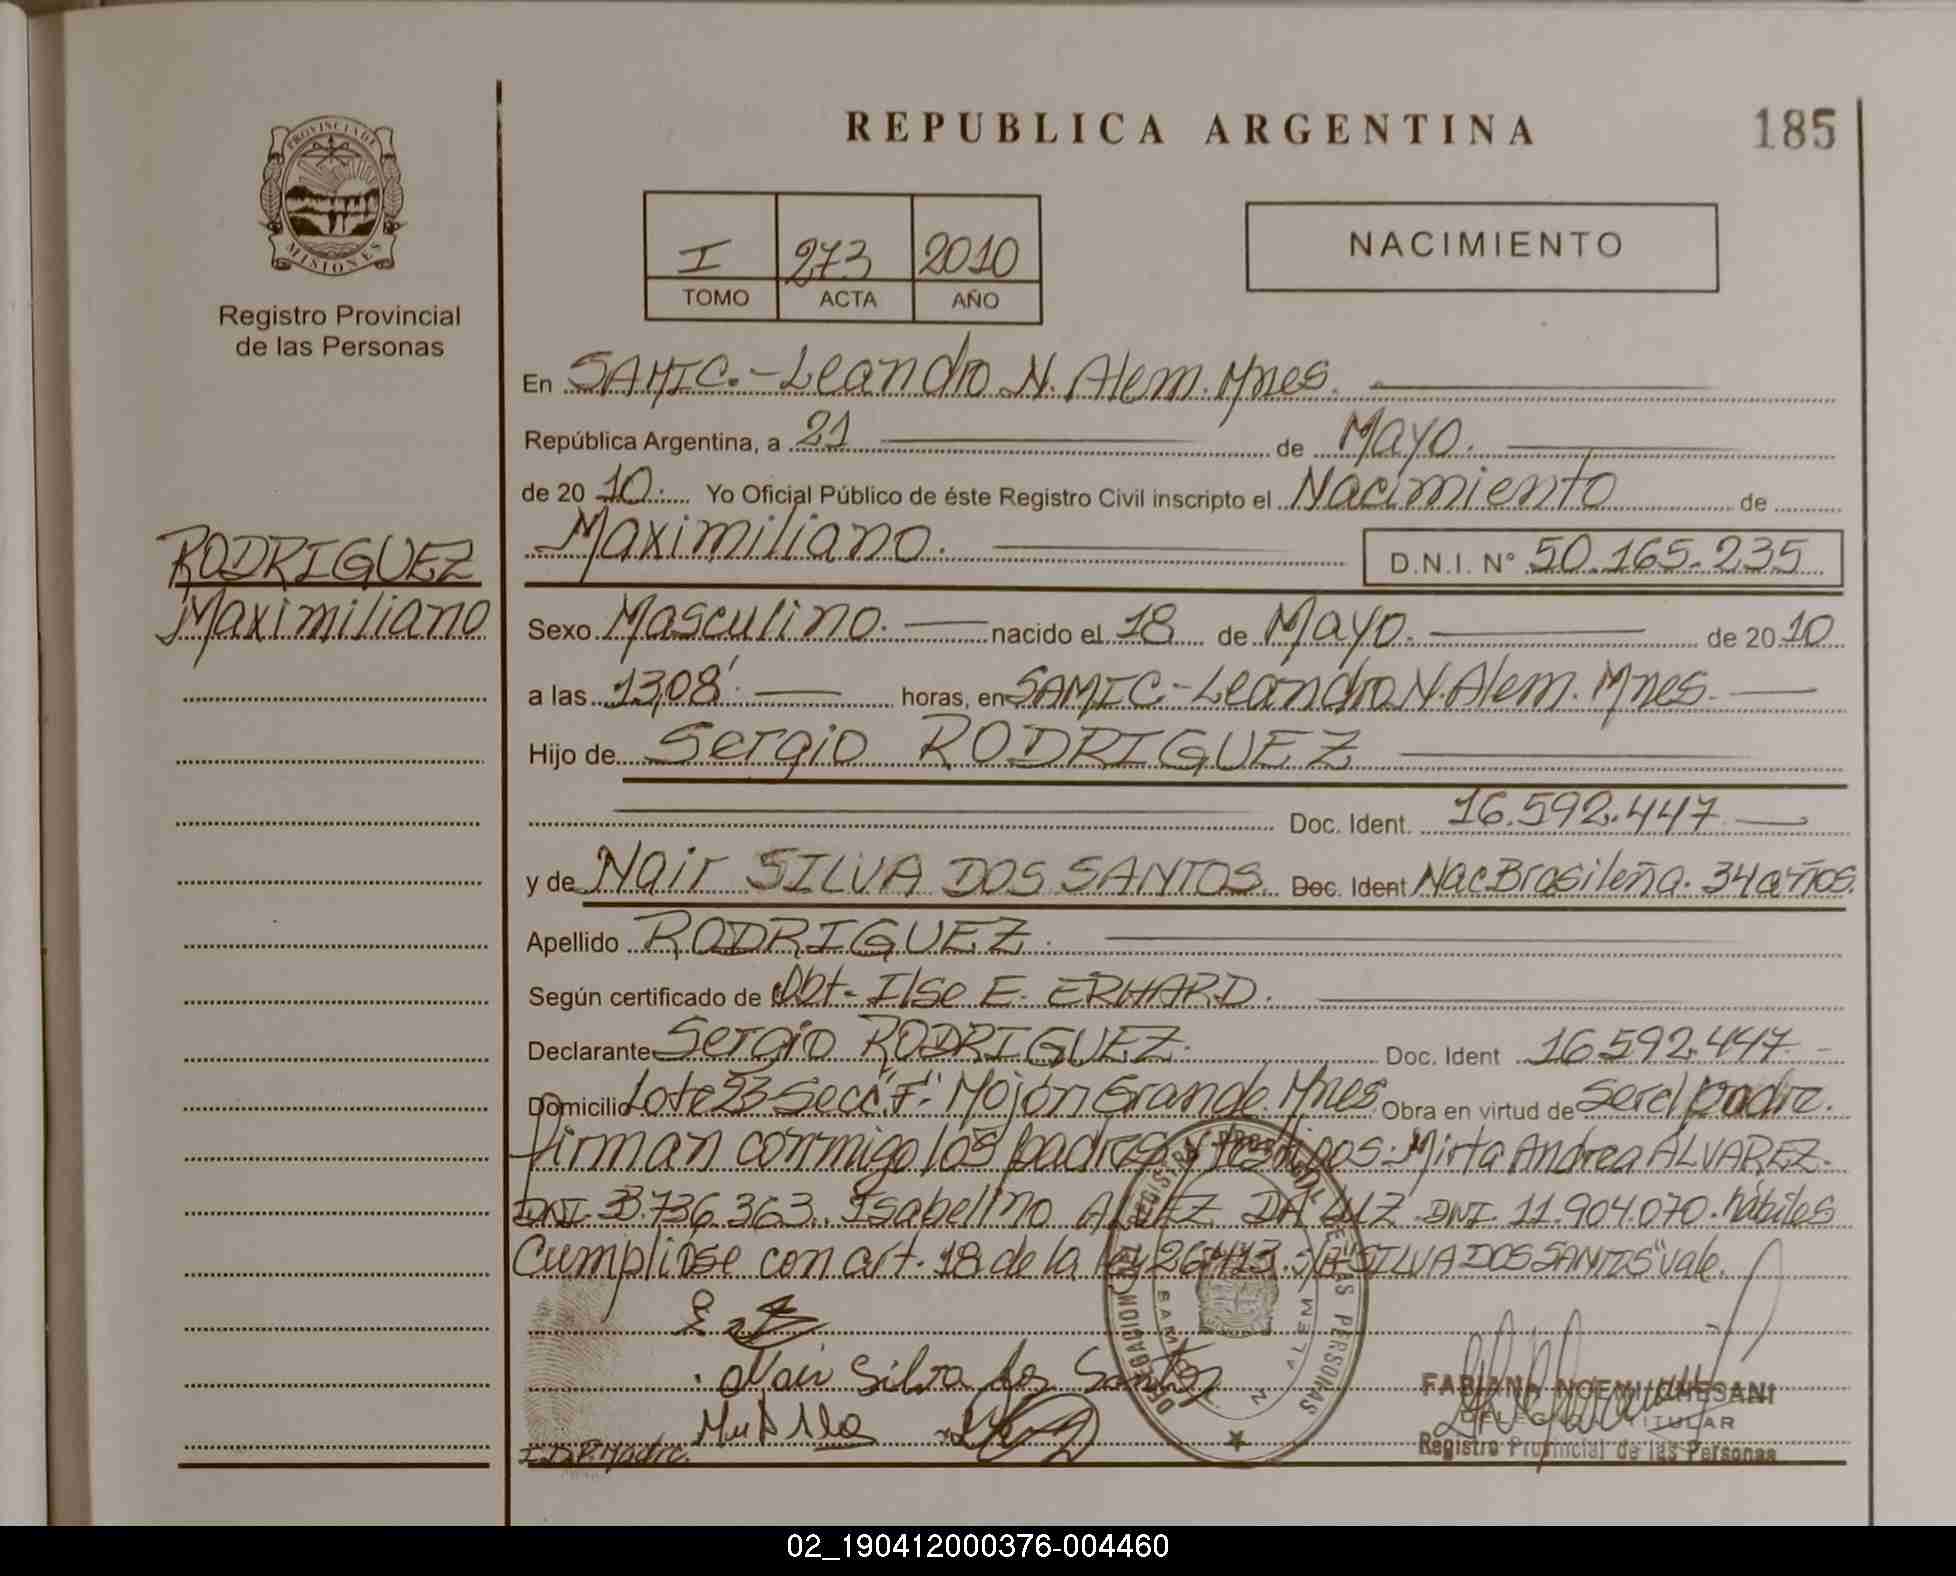 REPUBLICA ARGENTINA
185
PROVINCIA DE
MISIONES
Registro Provincial
de las Personas
I 273 2010
TOMO ACTA AÑO
NACIMIENTO
En SAMIC.-Leandro N. Alem. Mnes.
República Argentina, a 21 de Mayo.
de 2010. Yo Oficial Público de éste Registro Civil inscripto el Nacimiento de
Maximiliano. D.N.I. N° 50.165.235
RODRIGUEZ
Maximiliano
Sexo Masculino. nacido el 18 de Mayo. de 2010
a las 13,08' horas, en SAMIC.-Leandro N. Alem. Mnes.
Hijo de Sergio RODRIGUEZ
Doc. Ident. 16.592.447
y de Nair SILVA DOS SANTOS. Doc. Ident Nac Brasileña. 34 años.
Apellido RODRIGUEZ.
Según certificado de Obt- Ilse E. ERHARD.
Declarante Sergio RODRIGUEZ. Doc. Ident 16.592.447-
Domicilio Lote 23 Secc "F". Mojón Grande. Mnes Obra en virtud de ser el padre.
firman conmigo los padres y testigos: Mirta Andrea ALVAREZ.
DNI. 33.736.363. Isabelino ALVEZ DA LUZ. DNI. 11.904.070. hábiles
Cumplióse con art. 18 de la ley 26413. S/R "SILVA DOS SANTOS" vale.
Nair Silva dos Santos
I.D.P. Madre.
DELEGACION REGISTRO PROVINCIAL DE LAS PERSONAS
SAMIC
N ALEM
FABIANA NOEMI
DELEGADA TITULAR
Registro Provincial de las Personas
02_190412000376-004460